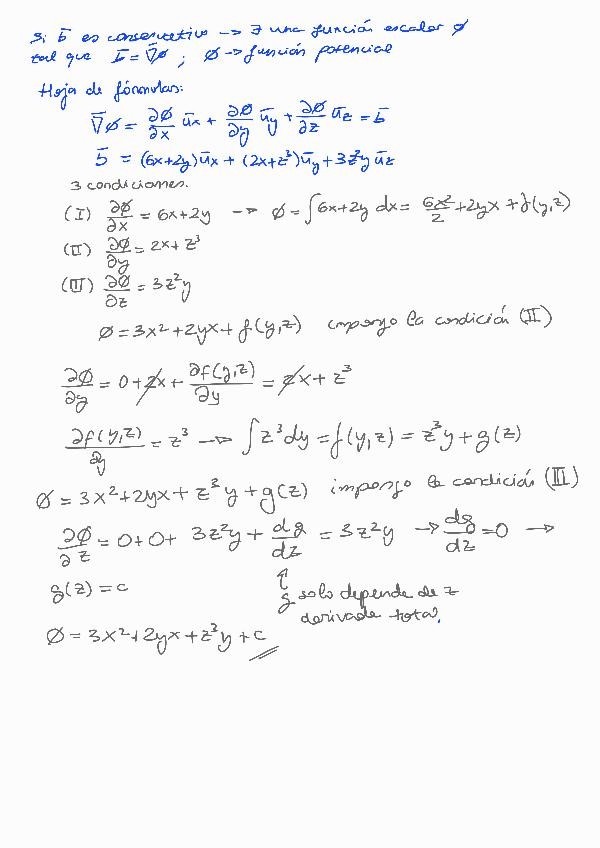 Si b̄ es conservativo → ∃ una función escalar ∅
tal que b̄ = ∇̄∅ ; ∅ → función potencial
Hoja de fórmulas:
∇̄∅ = ∂∅/∂x ūx + ∂∅/∂y ūy + ∂∅/∂z ūz = b̄
b̄ = (6x+2y)ūx + (2x+z³)ūy + 3z²y ūz
3 condiciones.
(I) ∂∅/∂x = 6x+2y → ∅ = ∫6x+2y dx = 6x²/2 + 2yx + f(y,z)
(II) ∂∅/∂y = 2x + z³
(III) ∂∅/∂z = 3z²y
∅ = 3x² + 2yx + f(y,z) impongo la condición (II)
∂∅/∂y = 0 + 2x + ∂f(y,z)/∂y = 2x + z³
∂f(y,z)/∂y = z³ → ∫z³dy = f(y,z) = z³y + g(z)
∅ = 3x² + 2yx + z³y + g(z) impongo la condición (III)
∂∅/∂z = 0+0+ 3z²y + dg/dz = 3z²y → dg/dz = 0 →
g(z) = c ↑ g solo depende de z
derivada total.
∅ = 3x² + 2yx + z³y + c